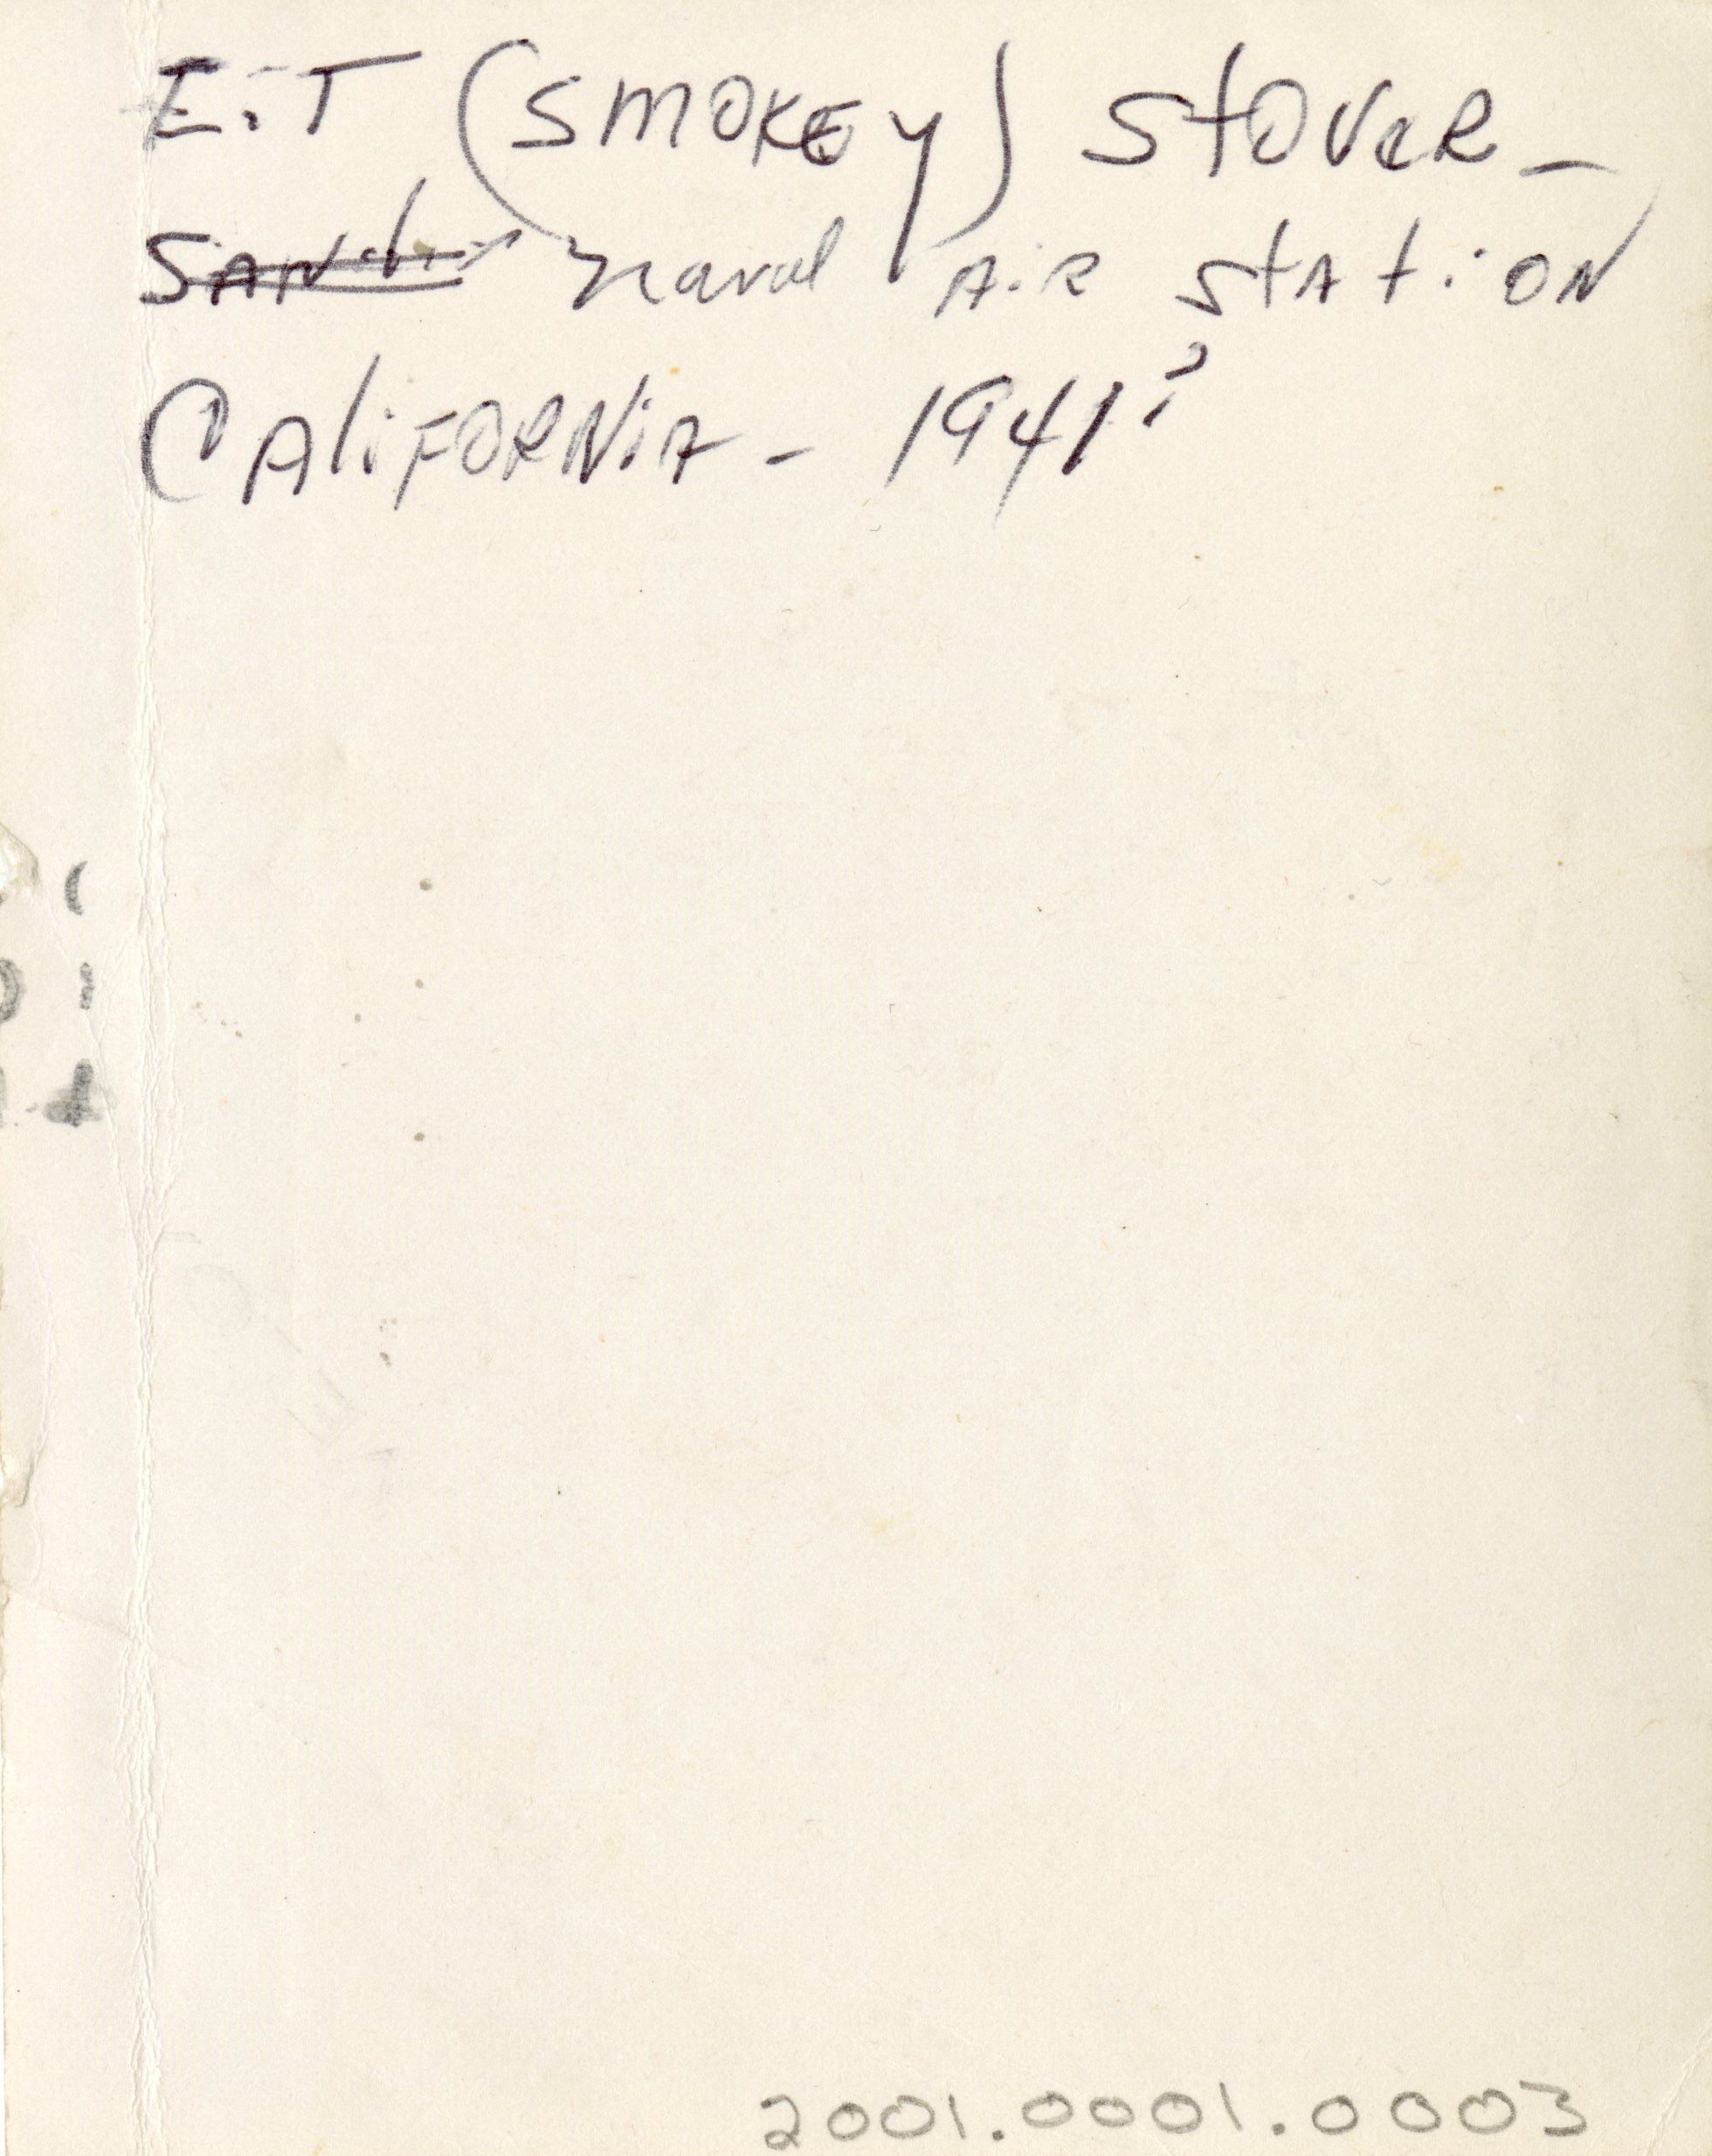 E.T (SMOKEY) StOVeR -
naval AiR StAtiON
CAliFORNiA - 1941?
2001.0001.0003